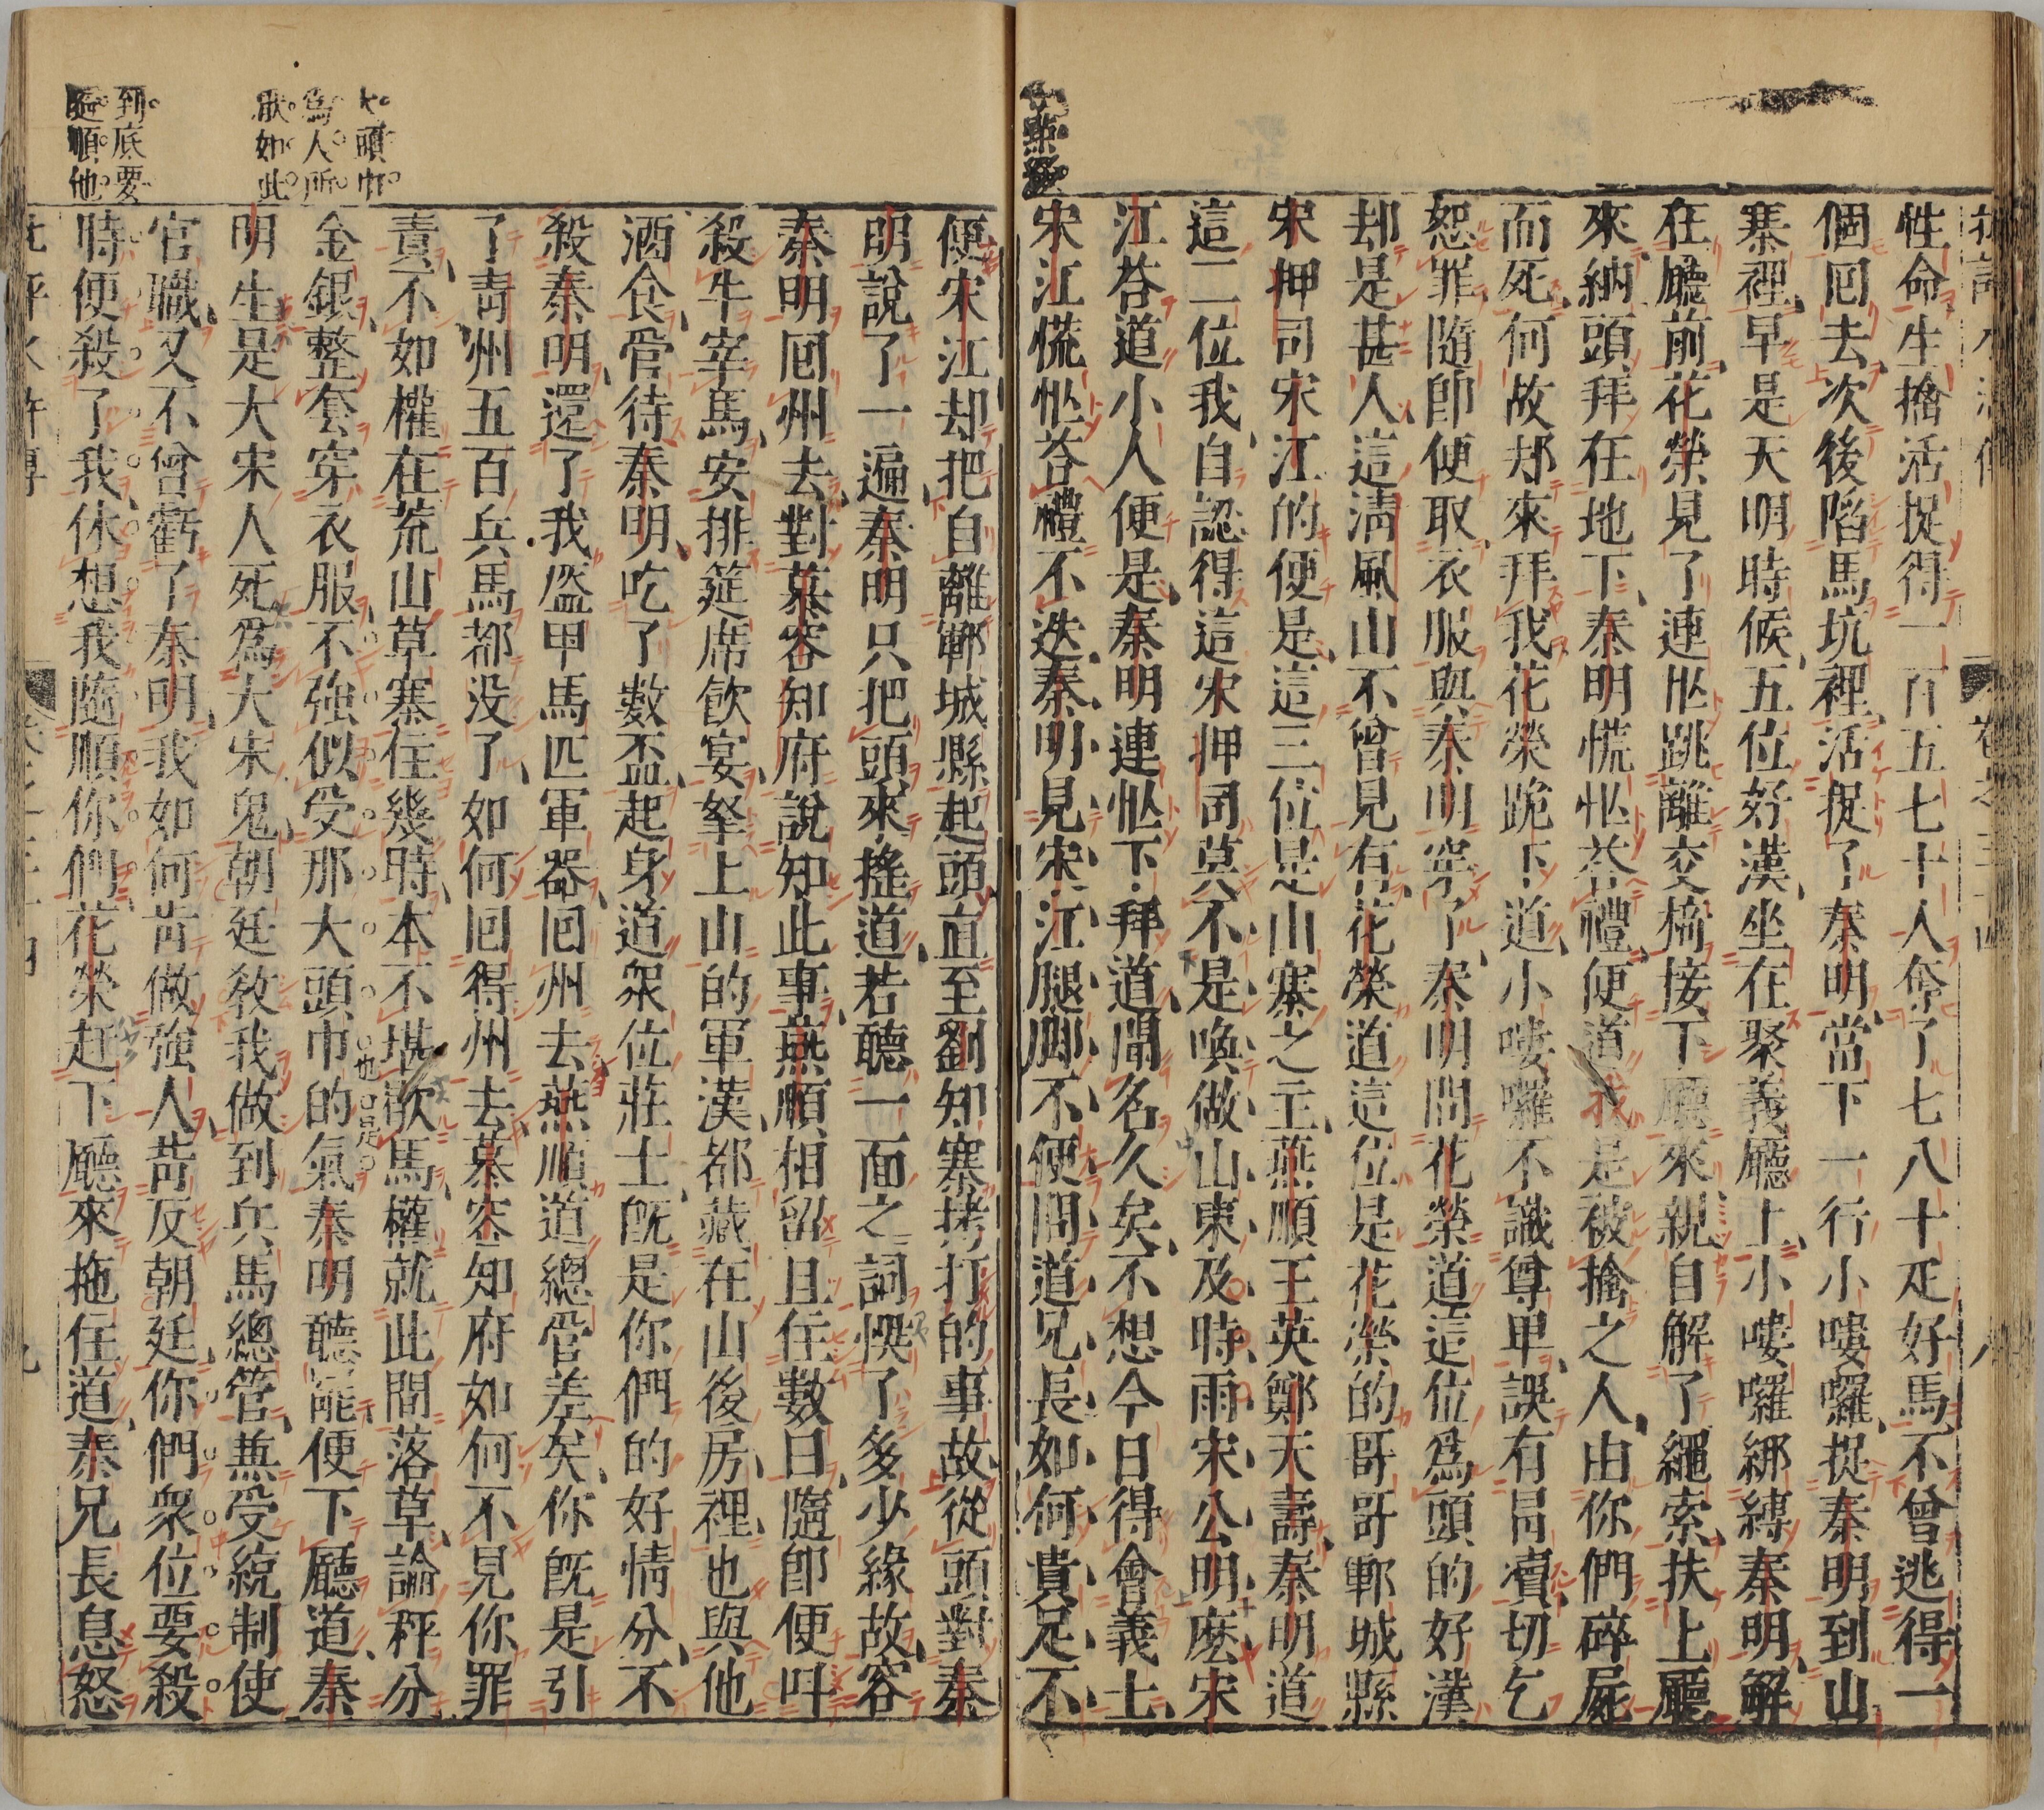 性命生擒活捉得一百五七十人奪了七八十疋好馬不曾逃得一
個囘去次後陷馬坑裡活捉了秦明當下一行小嘍囉捉秦明到山
寨裡早是天明時候五位好漢坐在聚義廳上小嘍囉綁縛秦明解
在廳前花榮見了連忙跳離交椅接下廳來親自解了繩索扶上廳
來納頭拜在地下秦明慌忙荅禮便道我是被擒之人由你們碎屍
而死何故却來拜我花榮跪下道小嘍囉不識尊卑誤有冐瀆切乞
恕罪隨卽便取衣服與秦明穿了秦明問花榮道這位爲頭的好漢
却是甚人這清風山不曾見有花榮道這位是花榮的哥哥鄆城縣
宋押司宋江的便是這三位是山寨之主燕順王英鄭天壽秦明道
這二位我自認得這宋押司莫不是喚做山東及時雨宋公明麽宋
江荅道小人便是秦明連忙下拜道聞名久矣不想今日得會義士
宋江慌忙荅禮不迭秦明見宋江腿脚不便問道兄長如何貴足不
便宋江却把自離鄆城縣起頭直至劉知寨拷打的事故從頭對秦
明說了一遍秦明只把頭來搖道若聽一面之詞悞了多少緣故容
秦明囘州去對慕容知府說知此事燕順相留且住數日隨卽便呌
殺牛宰馬安排筵席飮宴拏上山的軍漢都藏在山後房裡也與他
酒食管待秦明吃了數盃起身道衆位莊士旣是你們的好情分不
殺秦明還了我盔甲馬匹軍器囘州去燕順道總管差矣你旣是引
了靑州五百兵馬都没了如何囘得州去慕容知府如何不見你罪
責不如權在荒山草寨住幾時本不堪歇馬權就此間落草論秤分
金銀整套穿衣服不強似受那大頭巾的氣秦明聽罷便下廳道秦
也是
明生是大宋人死爲大宋鬼朝廷敎我做到兵馬總管兼受統制使
官職又不曾虧了秦明我如何肯做強人背反朝廷你們衆位要殺
時便殺了我休想我隨順你們花榮赶下廳來拖住道秦兄長息怒
大頭巾
爲人所
厭如此
到底要
隨順他